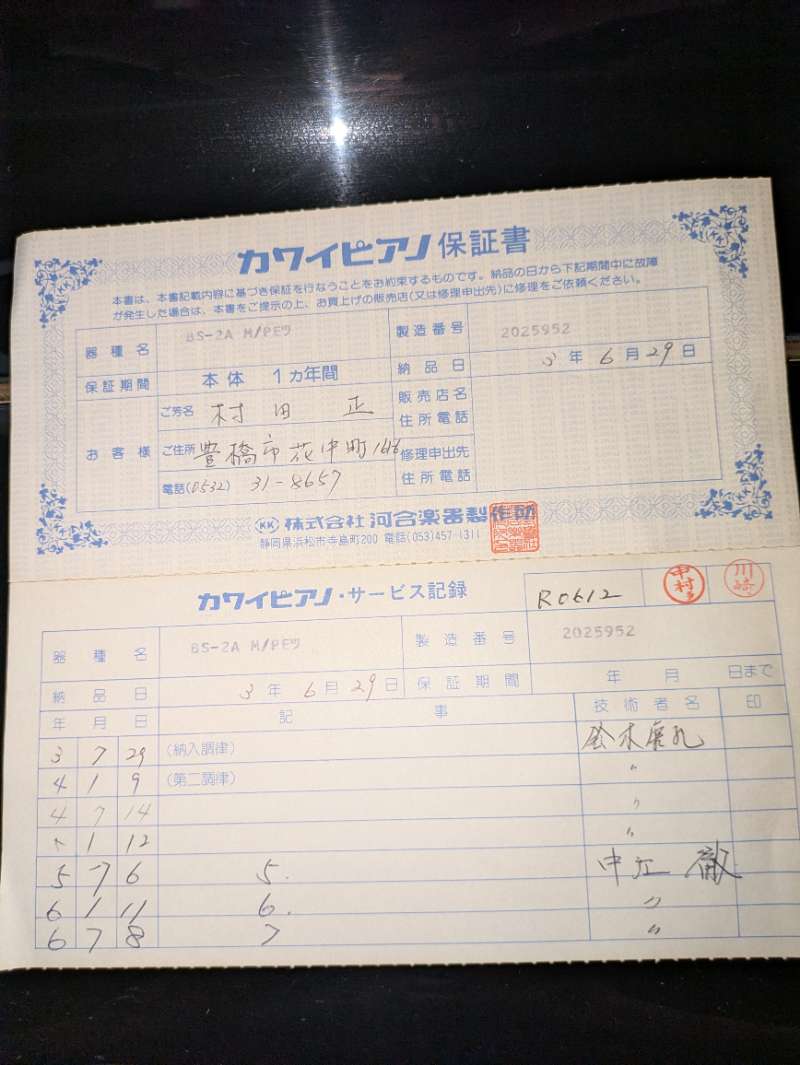 カワイピアノ 保証書
本書は、本書記載内容に基づき保証を行なうことをお約束するものです。納品の日から下記期間中に故障
が発生した場合は、本書をご提示の上、お買上げの販売店(又は修理申出先)に修理をご依頼ください。
器種名 BS-2A M/PEツ 製造番号 2025952
保証期間 本体 1カ年間 納品日 3年6月29日
お客様 ご芳名 村田 正 販売店名 住所電話
ご住所 豊橋市花中町 修理申出先 住所電話
電話(0532) 31-8657
KK 株式会社 河合楽器製作所
静岡県浜松市寺島町200 電話(053)457-1311
カワイピアノ・サービス記録 R0612 中村 川崎
器種名 BS-2A M/PEツ 製造番号 2025952
納品日 3年6月29日 保証期間 年 月 日まで
年 月 日 記事 技術者名 印
3 7 29 (納入調律) 鈴木
4 1 9 (第二調律) 〃
4 7 14 〃
1 12 〃
5 7 6 5. 中江 徹
6 1 11 6. 〃
6 7 8 7 〃